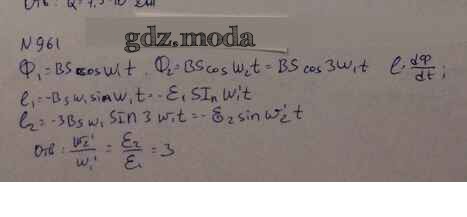 N 961
gdz.moda
Ф₁ = BS cos w₁t . Ф₂ = BS cos w₂t = BS cos 3w₁t e = dФ/dt ;
e₁ = -Bsw₁ sin w₁t = -ε₁ SIn w₁'t
e₂ = -3Bsw₁ SIn 3w₁t = -ε₂ sin w₂'t
Отв : w₂'/w₁' = ε₂/ε₁ = 3